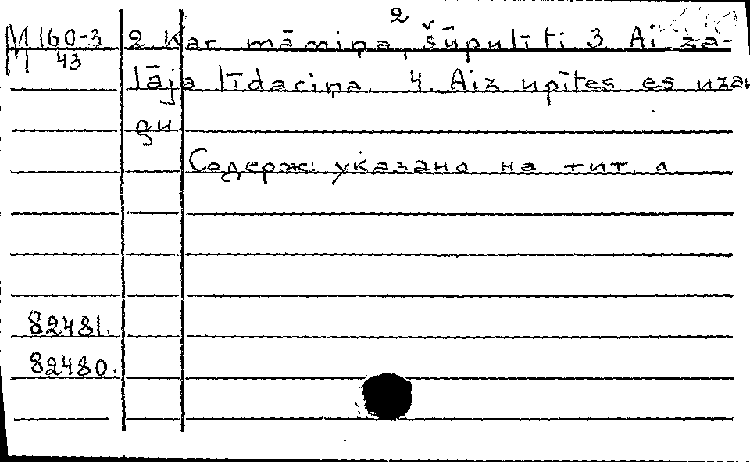 2
M 160-3 2. Kar māmiņa, šūpulīti 3. Ai za-
43
lāja līdaciņa. 4. Aiz upītes es uzau
gu
Содерж. указано на тит. л.
82481.
82480.